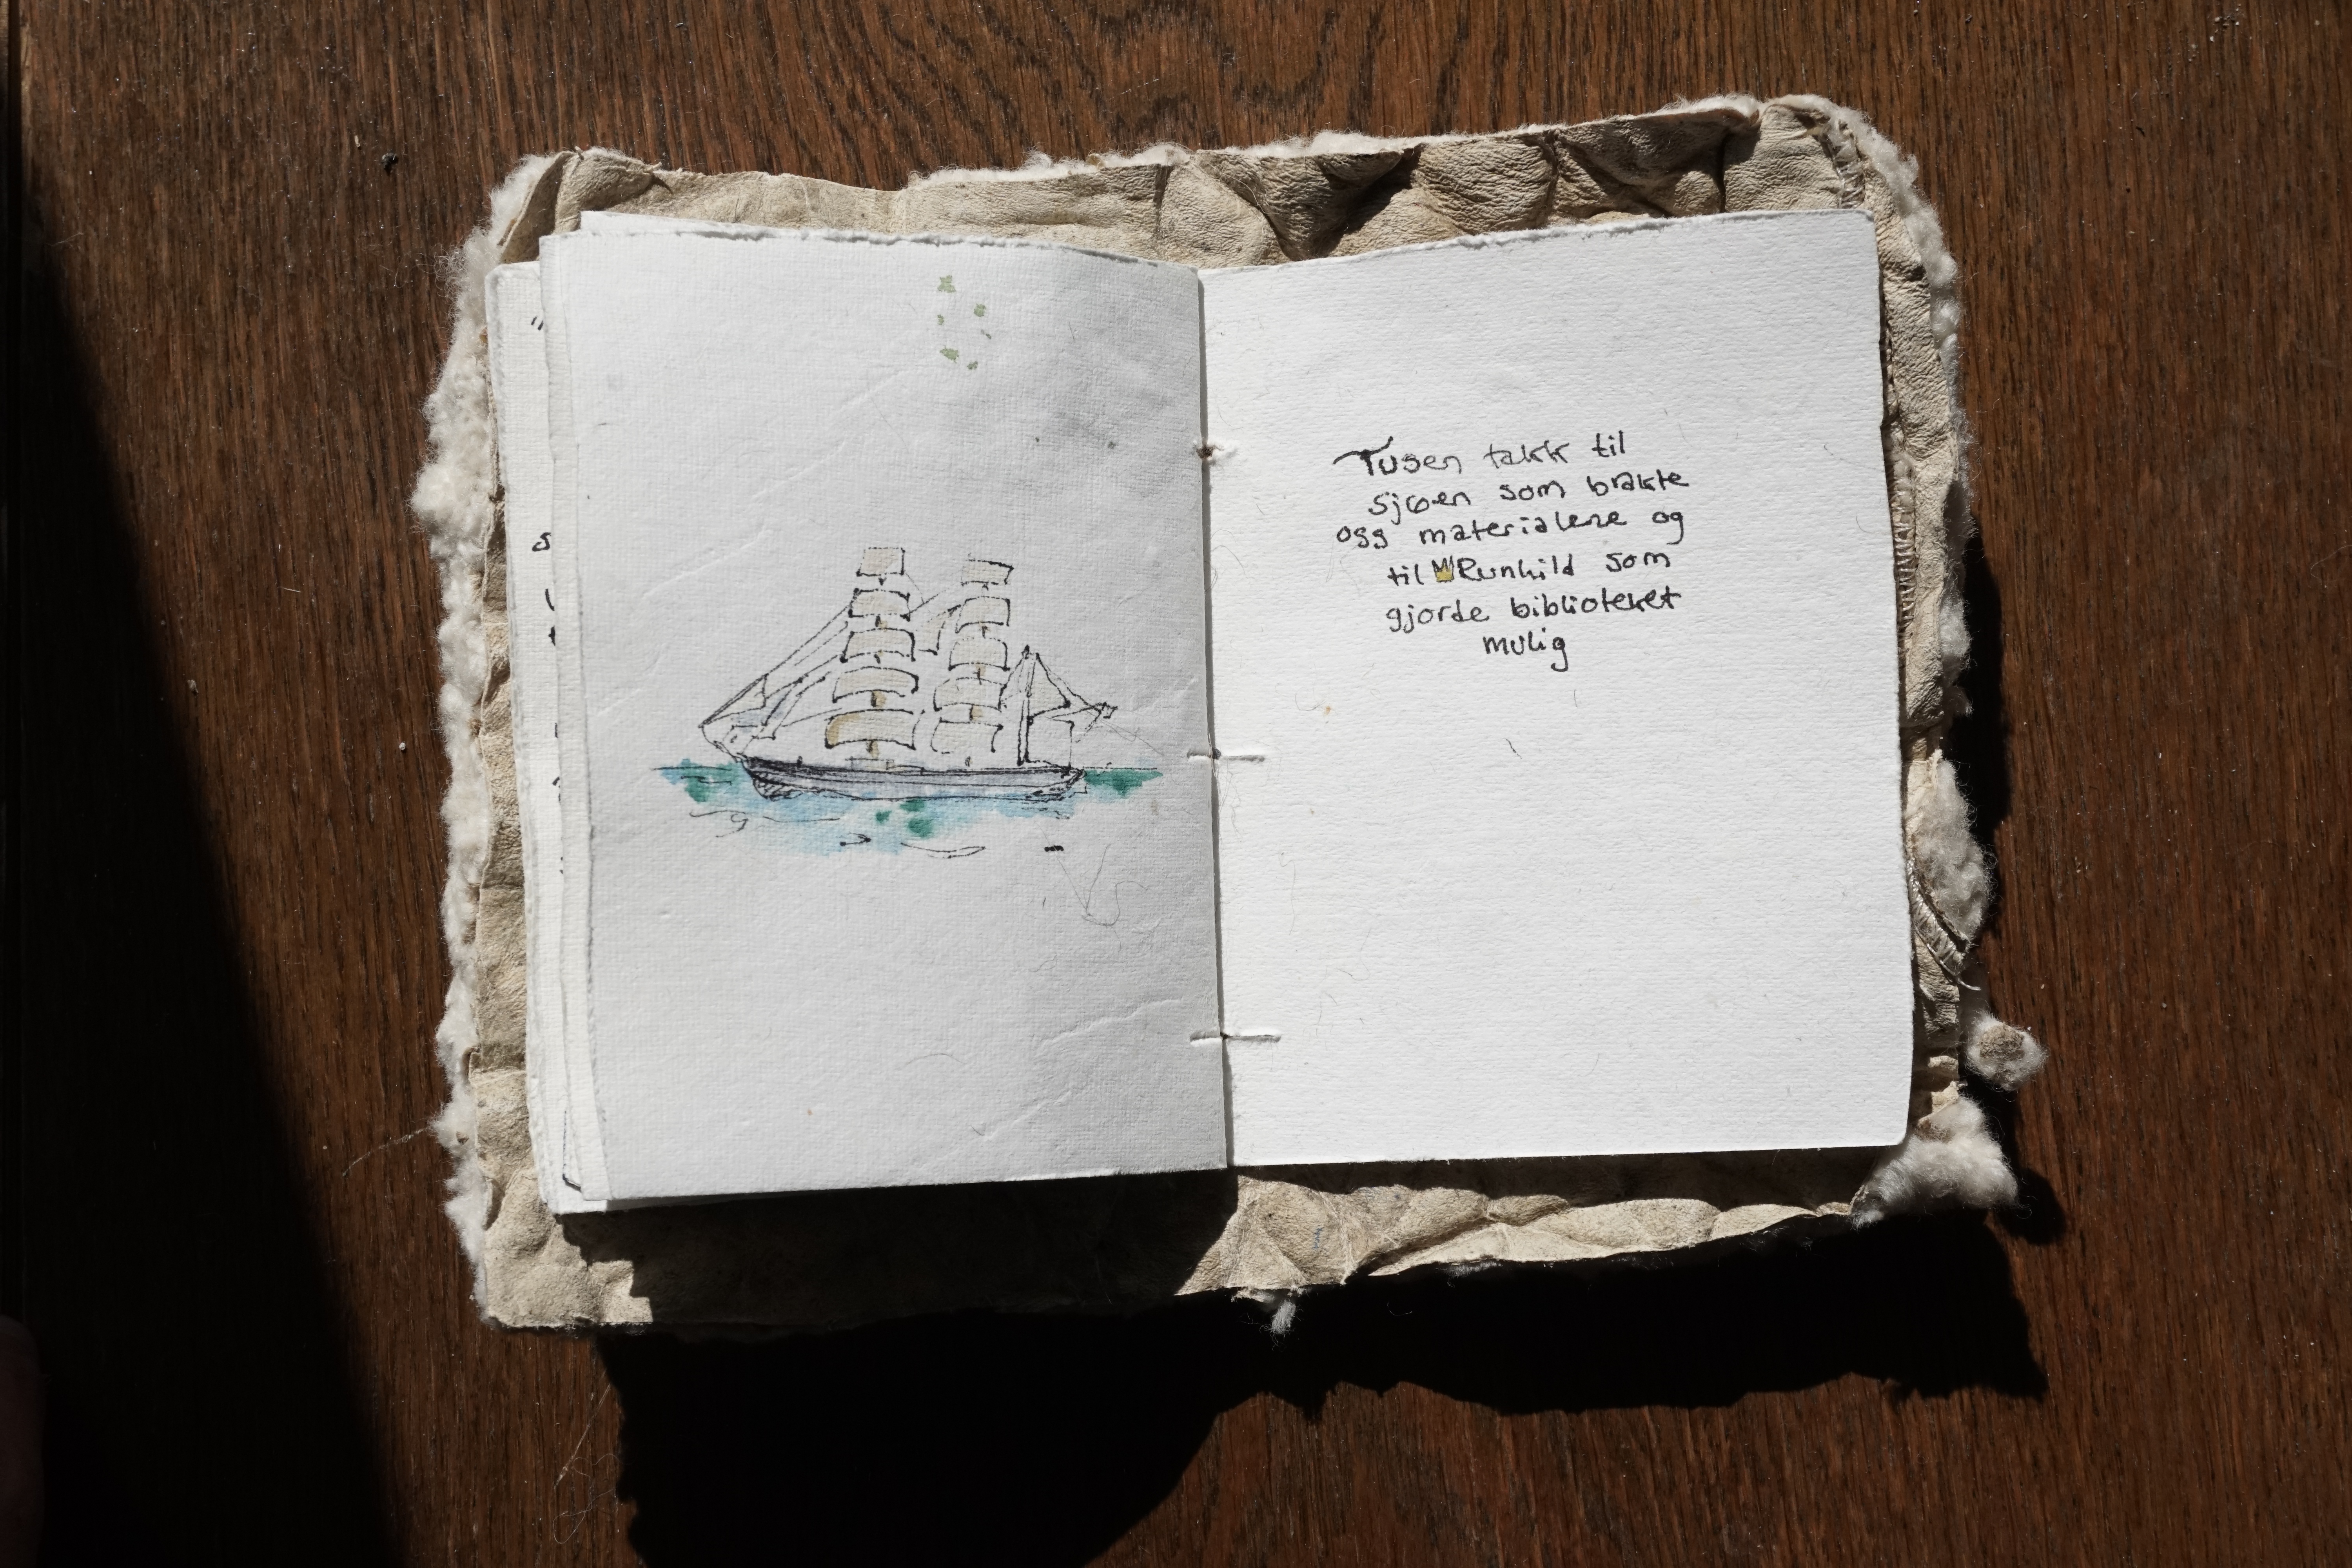 Tusen takk til
sjøen som brakte
oss materialene og
til Runhild som
gjorde biblioteket
mulig